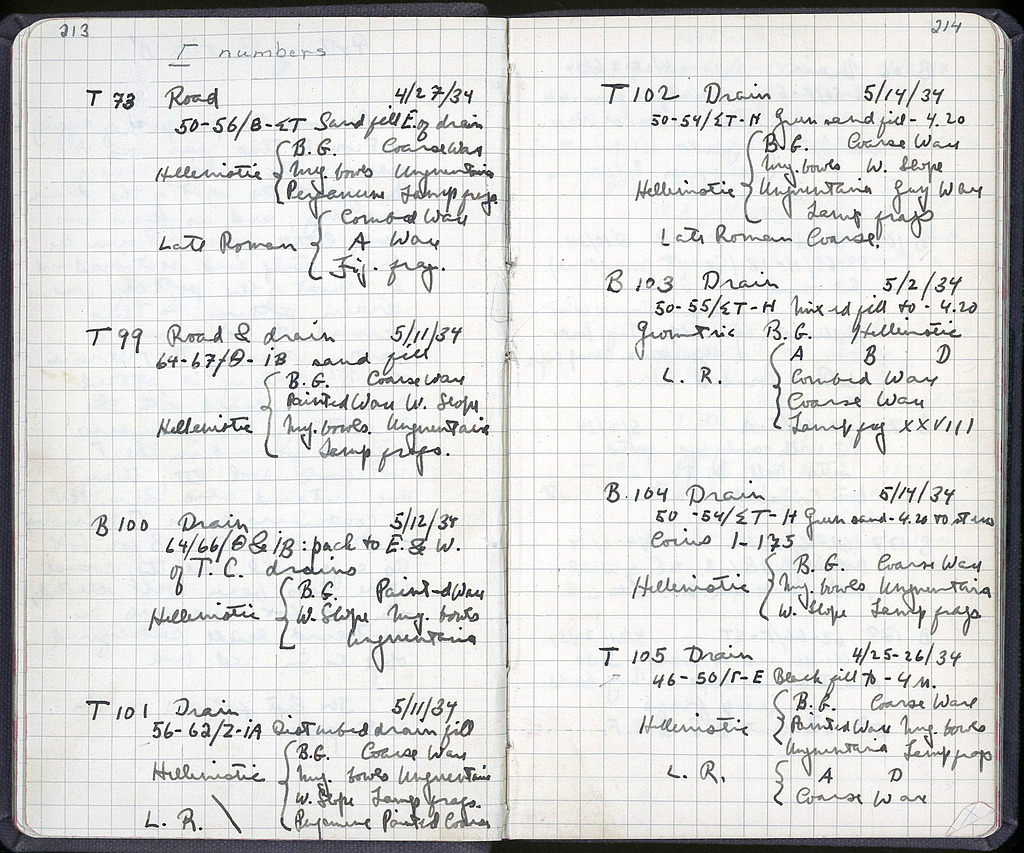 213
I numbers
T 73 Road 4/27/34
50-56/B-ΣT Sand fill E. of drain
B.G. Coarse Ware
Hellenistic Meg. bowls Unguentaria
Pergamene Lamp frags
Combed Ware
Late Roman A Ware
Fig. frag.
T 99 Road & drain 5/11/34
64-67/Θ-IB sand fill
B.G. Coarse Ware
Painted Ware W. Slope
Hellenistic Meg. bowls. Unguentaria
Lamp frags.
B 100 Drain 5/12/34
64/66/Θ & IB: pack to E. & W.
of T.C. drains
B.G. Painted Ware
Hellenistic W. Slope Meg. bowls
Unguentaria
T 101 Drain 5/11/34
56-62/Z-IA Disturbed drain fill
B.G. Coarse Ware
Hellenistic Meg. bowls Unguentaria
W. Slope Lamp frags.
L. R. \ Pergamene Painted Coarse
214
T 102 Drain 5/14/34
50-54/ΣT-H Green sand fill - 4.20
B.G. Coarse Ware
Meg. bowls W. Slope
Hellenistic Unguentaria Gray Ware
Lamp frags
Late Roman Coarse.
B 103 Drain 5/2/34
50-55/ΣT-H Mixed fill to - 4.20
Geometric B.G. Hellenistic
A B D
L. R. Combed Ware
Coarse Ware
Lamp frag XXVIII
B 104 Drain 5/14/34
50-54/ΣT-H Green sand -4.20 to
Coins 1-175
B.G. Coarse Ware
Hellenistic Meg. bowls Unguentaria
W. Slope Lamp frags
T 105 Drain 4/25-26/34
46-50/Γ-E Black fill to - 4 m.
B.G. Coarse Ware
Hellenistic Painted Ware Meg. bowls
Unguentaria Lamp frags
L. R. A D
Coarse Ware